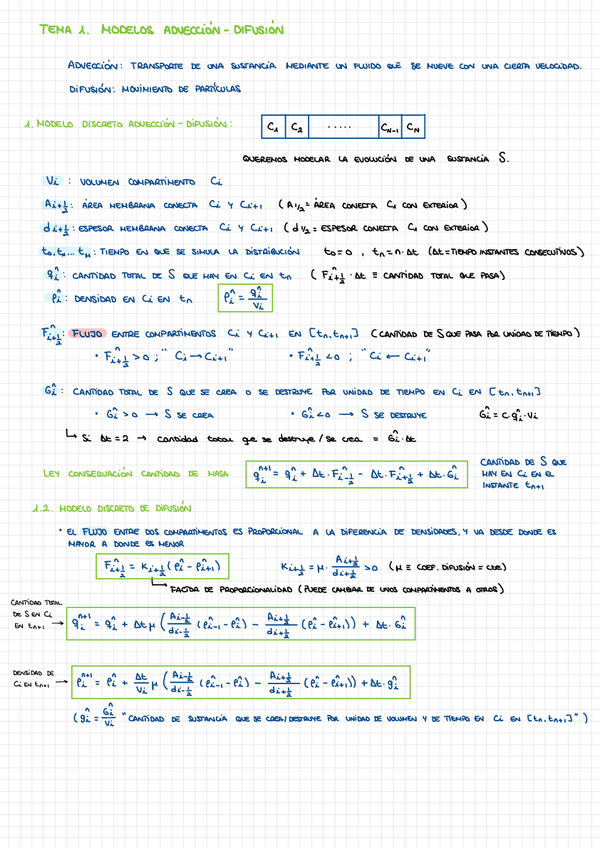 TEMA 1. MODELOS ADVECCIÓN - DIFUSIÓN
ADVECCIÓN: TRANSPORTE DE UNA SUSTANCIA MEDIANTE UN FLUIDO QUE SE MUEVE CON UNA CIERTA VELOCIDAD.
DIFUSIÓN: MOVIMIENTO DE PARTÍCULAS
1. MODELO DISCRETO ADVECCIÓN - DIFUSIÓN: C₁ C₂ ..... C_{N-1} C_N
QUEREMOS MODELAR LA EVOLUCIÓN DE UNA SUSTANCIA S.
V_i : VOLUMEN COMPARTIMENTO C_i
A_{i+1/2} : ÁREA MEMBRANA CONECTA C_i Y C_{i+1} (A_{1/2} = ÁREA CONECTA C₁ CON EXTERIOR)
d_{i+1/2} : ESPESOR MEMBRANA CONECTA C_i Y C_{i+1} (d_{1/2} = ESPESOR CONECTA C₁ CON EXTERIOR)
t₀, t₁ ... t_M : TIEMPO EN QUE SE SIMULA LA DISTRIBUCIÓN t₀ = 0 , t_n = n·Δt (Δt = TIEMPO INSTANTES CONSECUTIVOS)
q_i^n : CANTIDAD TOTAL DE S QUE HAY EN C_i EN t_n (F_{i+1/2}^n · Δt ≡ CANTIDAD TOTAL QUE PASA)
ρ_i^n : DENSIDAD EN C_i EN t_n ρ_i^n = q_i^n / V_i
F_{i+1/2}^n : FLUJO ENTRE COMPARTIMENTOS C_i Y C_{i+1} EN [t_n, t_{n+1}] (CANTIDAD DE S QUE PASA POR UNIDAD DE TIEMPO)
• F_{i+1/2}^n > 0 ; "C_i → C_{i+1}" • F_{i+1/2}^n < 0 ; "C_i ← C_{i+1}"
G_i^n : CANTIDAD TOTAL DE S QUE SE CREA O SE DESTRUYE POR UNIDAD DE TIEMPO EN C_i EN [t_n, t_{n+1}]
• G_i^n > 0 → S SE CREA • G_i^n < 0 → S SE DESTRUYE G_i^n = c·q_i^n·V_i
↳ Si Δt = 2 → cantidad total que se destruye / se crea = G_i^n · Δt
LEY CONSERVACIÓN CANTIDAD DE MASA q_i^{n+1} = q_i^n + Δt · F_{i-1/2}^n - Δt · F_{i+1/2}^n + Δt · G_i^n
CANTIDAD DE S QUE
HAY EN C_i EN EL
INSTANTE t_{n+1}
1.2. MODELO DISCRETO DE DIFUSIÓN
• EL FLUJO ENTRE DOS COMPARTIMENTOS ES PROPORCIONAL A LA DIFERENCIA DE DENSIDADES, Y VA DESDE DONDE ES
MAYOR A DONDE ES MENOR
F_{i+1/2}^n = K_{i+1/2} (ρ_i^n - ρ_{i+1}^n) K_{i+1/2} = μ · A_{i+1/2} / d_{i+1/2} > 0 (μ ≡ COEF. DIFUSIÓN = cte)
↳ FACTOR DE PROPORCIONALIDAD (PUEDE CAMBIAR DE UNOS COMPARTIMENTOS A OTROS)
CANTIDAD TOTAL
DE S EN C_i
EN t_{n+1} → q_i^{n+1} = q_i^n + Δt μ (A_{i-1/2} / d_{i-1/2} (ρ_{i-1}^n - ρ_i^n) - A_{i+1/2} / d_{i+1/2} (ρ_i^n - ρ_{i+1}^n)) + Δt · G_i^n
DENSIDAD DE
C_i EN t_{n+1} → ρ_i^{n+1} = ρ_i^n + Δt / V_i μ (A_{i-1/2} / d_{i-1/2} (ρ_{i-1}^n - ρ_i^n) - A_{i+1/2} / d_{i+1/2} (ρ_i^n - ρ_{i+1}^n)) + Δt · g_i^n
(g_i^n = G_i^n / V_i "CANTIDAD DE SUSTANCIA QUE SE CREA/DESTRUYE POR UNIDAD DE VOLUMEN Y DE TIEMPO EN C_i EN [t_n, t_{n+1}]")